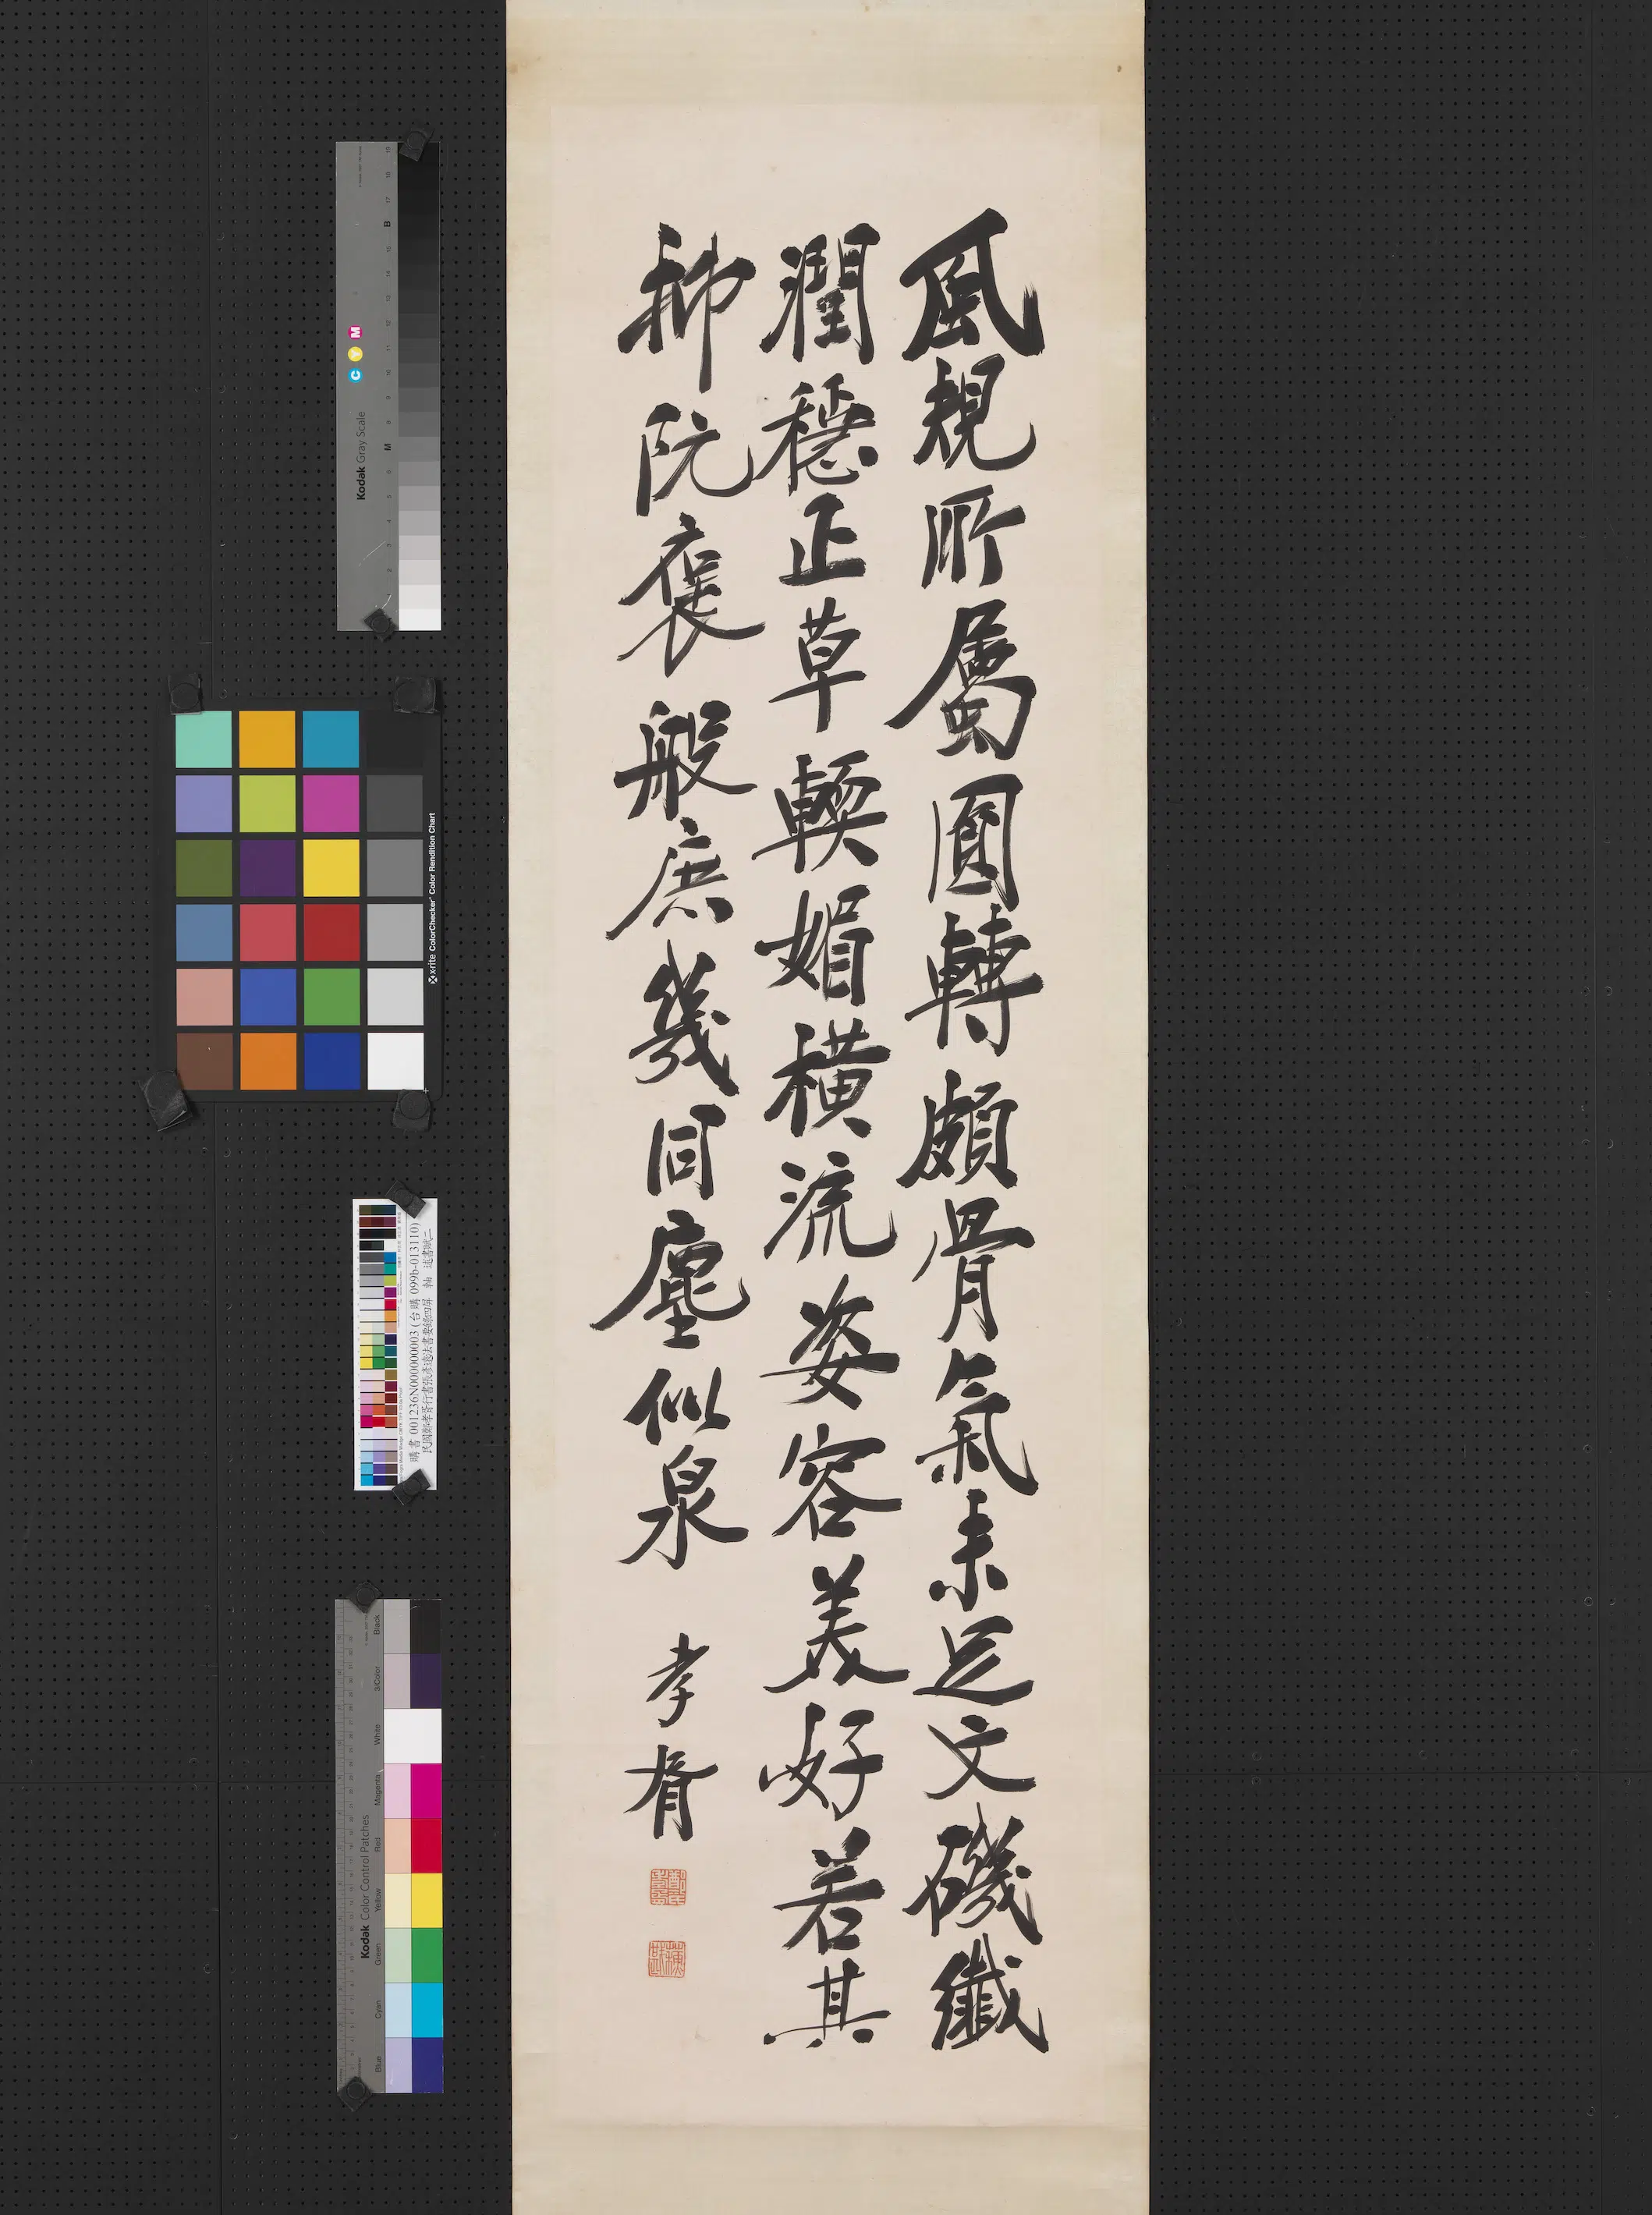 風規所屬圓轉頗骨氣未足文磯纖
潤穩正草輭媚橫流姿容美好若其
抑阮褒般庶幾同塵似泉
孝胥
Kodak Gray Scale
C Y M
x-rite ColorChecker Color Rendition Chart
購書 001236N000000003 (台購 099b-013110)
民國鄭孝胥行書張彥遠法書要錄四屏 軸 述書賦二
Kodak Color Control Patches
Blue Cyan Green Yellow Red Magenta White 3/Color Black